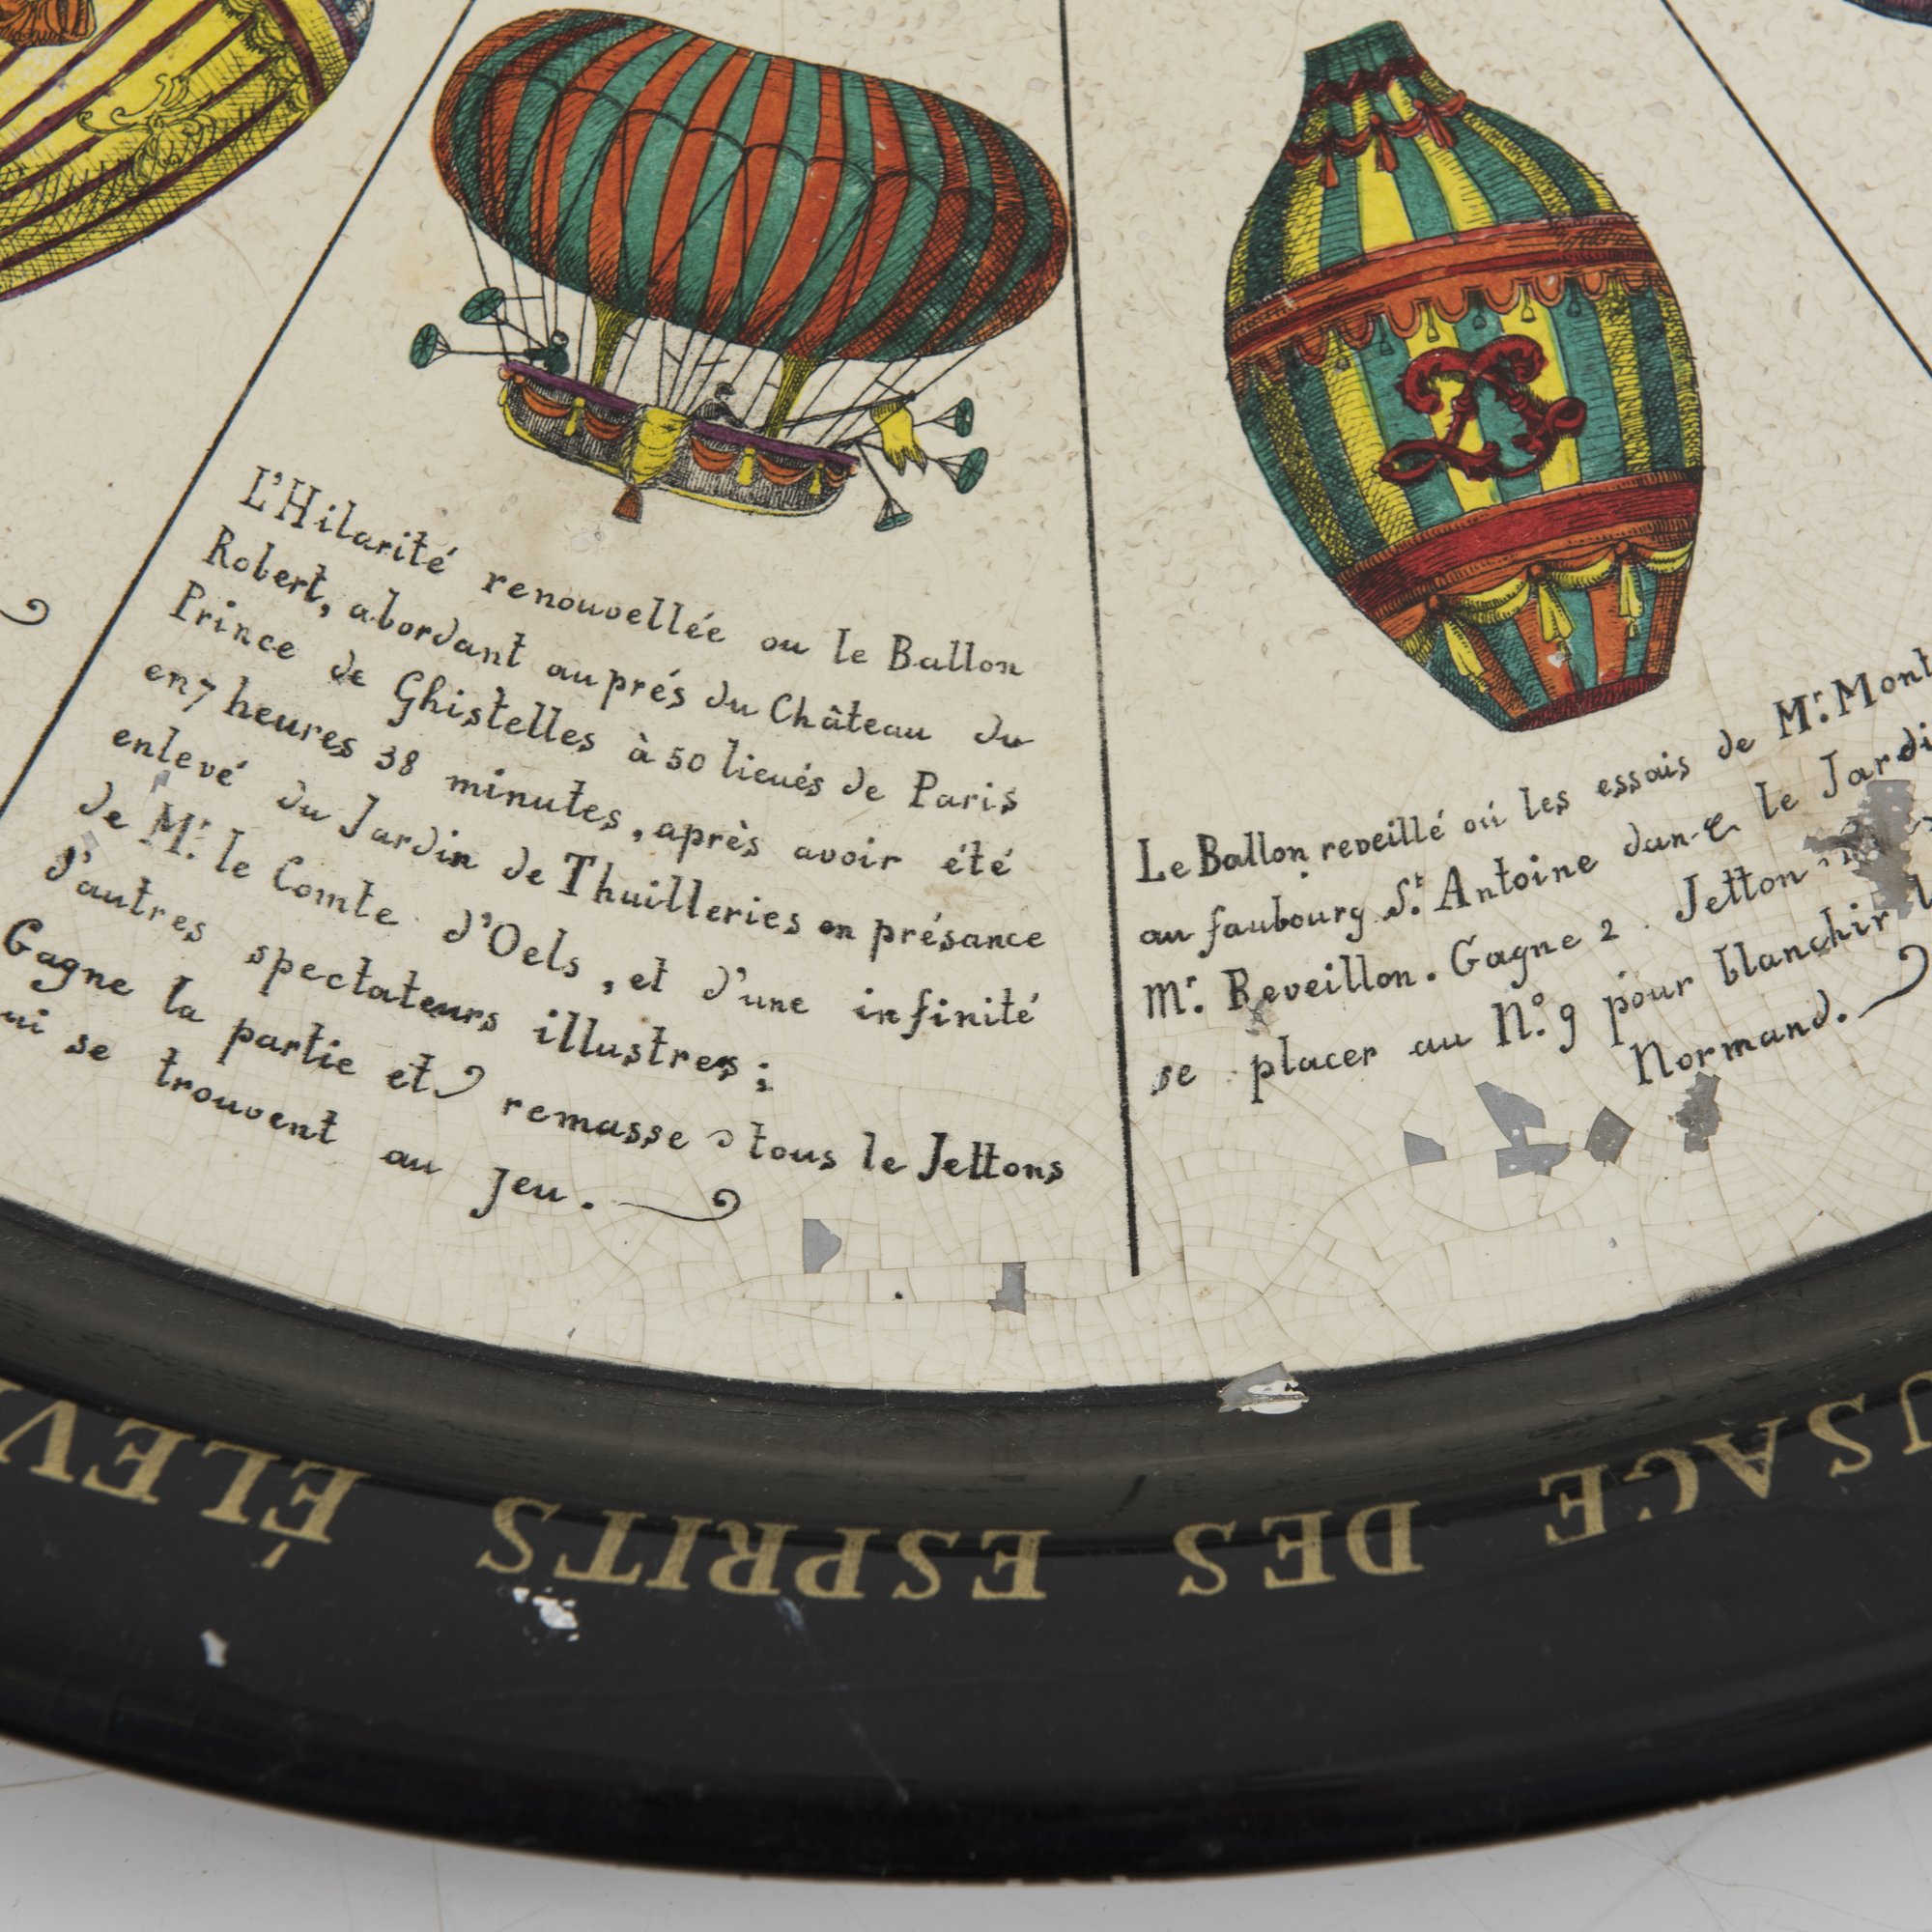 L'Hilarité renouvellée ou le Ballon
Robert, abordant auprés du Château du
Prince de Ghistelles à 50 lieués de Paris
en 7 heures 38 minutes, après avoir été
enlevé du Jardin de Thuilleries en présance
de Mr. le Comte d'Oels, et d'une infinité
d'autres spectateurs illustres;
Gagne la partie et remasse tous le Jettons
se trouvent au jeu.
Le Ballon reveillé oú les essais de Mr. Mont
au faubourg St. Antoine le Jardi
Mr. Reveillon. Gagne 2. Jetton
se placer au No. 9 pour blanchir
Normand.
USAGE DES ESPRITS ÉLEV